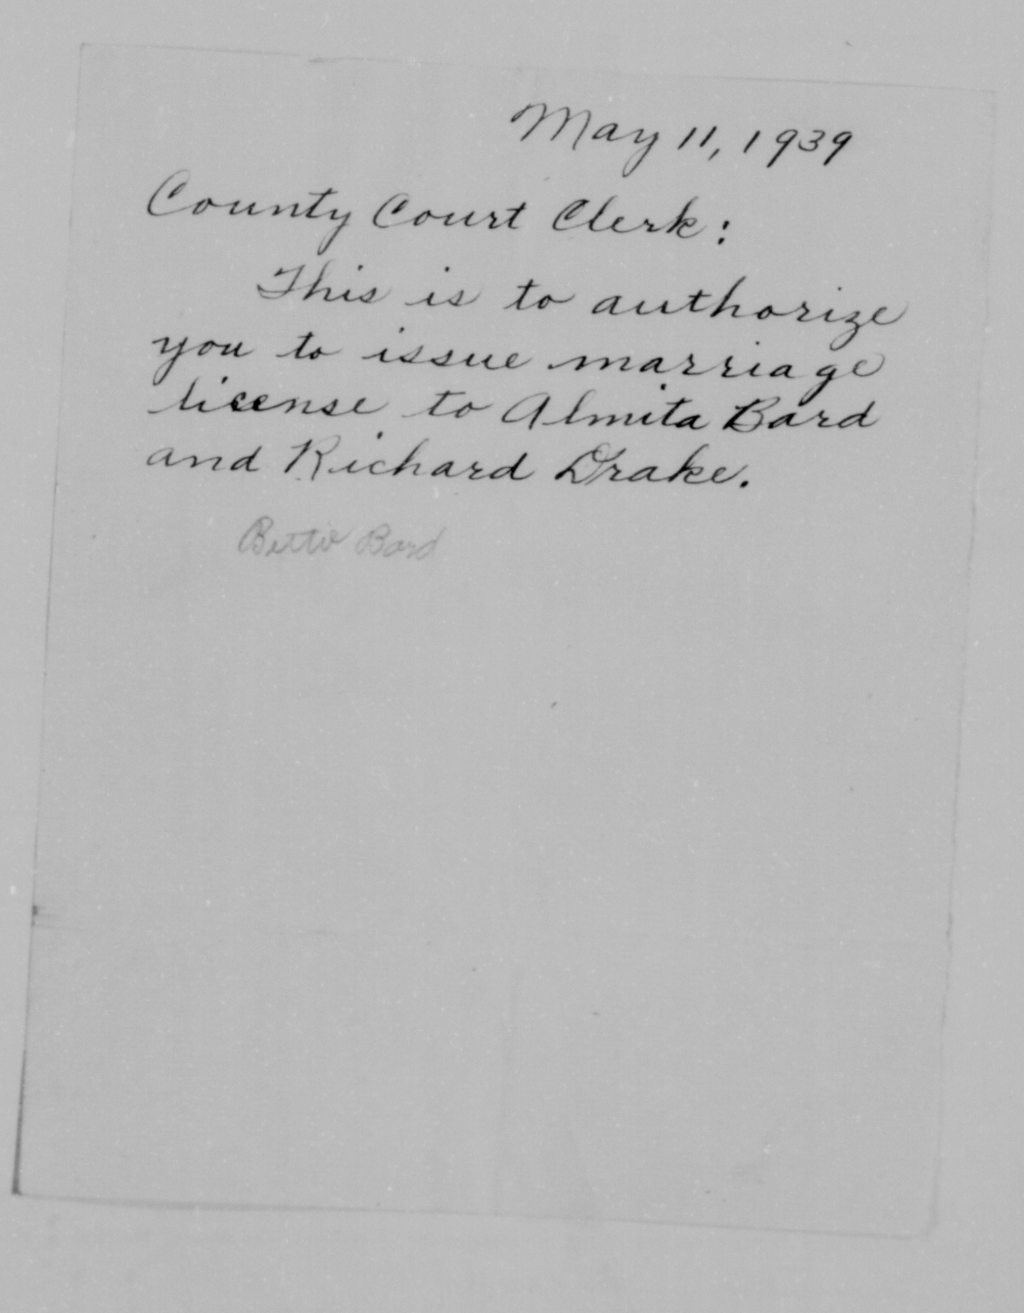 May 11, 1939
County Court Clerk:
This is to authorize
you to issue marriage
license to Almita Bard
and Richard Drake.
Bettie Bard